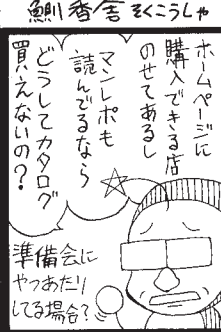 鯏香舎 そくこうしゃ
ホームページに
購入できる店
のせてあるし
マンレポも
読んでるなら
どうしてカタログ
買えないの?
準備会に
やつあたり
してる場合?